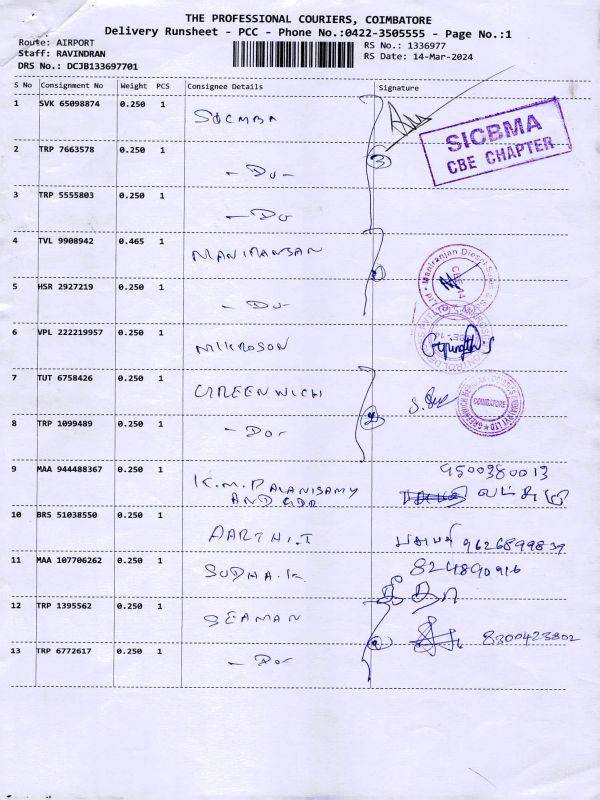 THE PROFESSIONAL COURIERS, COIMBATORE
Delivery Runsheet - PCC - Phone No.:0422-3505555 - Page No.:1
Route: AIRPORT
RS No.: 1336977
Staff: RAVINDRAN
RS Date: 14-Mar-2024
DRS No.: DCJB133697701
S No Consignment No Weight PCS Consignee Details Signature
1 SVK 65098874 0.250 1
SICBMA
CBE CHAPTER
2 TRP 7663578 0.250 1 - Do - 3
3 TRP 5555803 0.250 1 - Do
4 TVL 9908942 0.465 1 MANIRANJAN
Maniranjan Diesel Sales
5 HSR 2927219 0.250 1 - Do -
6 VPL 222219957 0.250 1 MIKROSON
7 TUT 6758426 0.250 1 GREENWICH
COIMBATORE
8 TRP 1099489 0.250 1 - Do - 2
9 MAA 944488367 0.250 1 K.M. PALANISAMY
AND
9500380013
10 BRS 51038550 0.250 1 AARTHI.T
11 MAA 107706262 0.250 1 SUDHA.K
824890916
12 TRP 1395562 0.250 1 SEAMAN
8300423802
13 TRP 6772617 0.250 1 - Do -